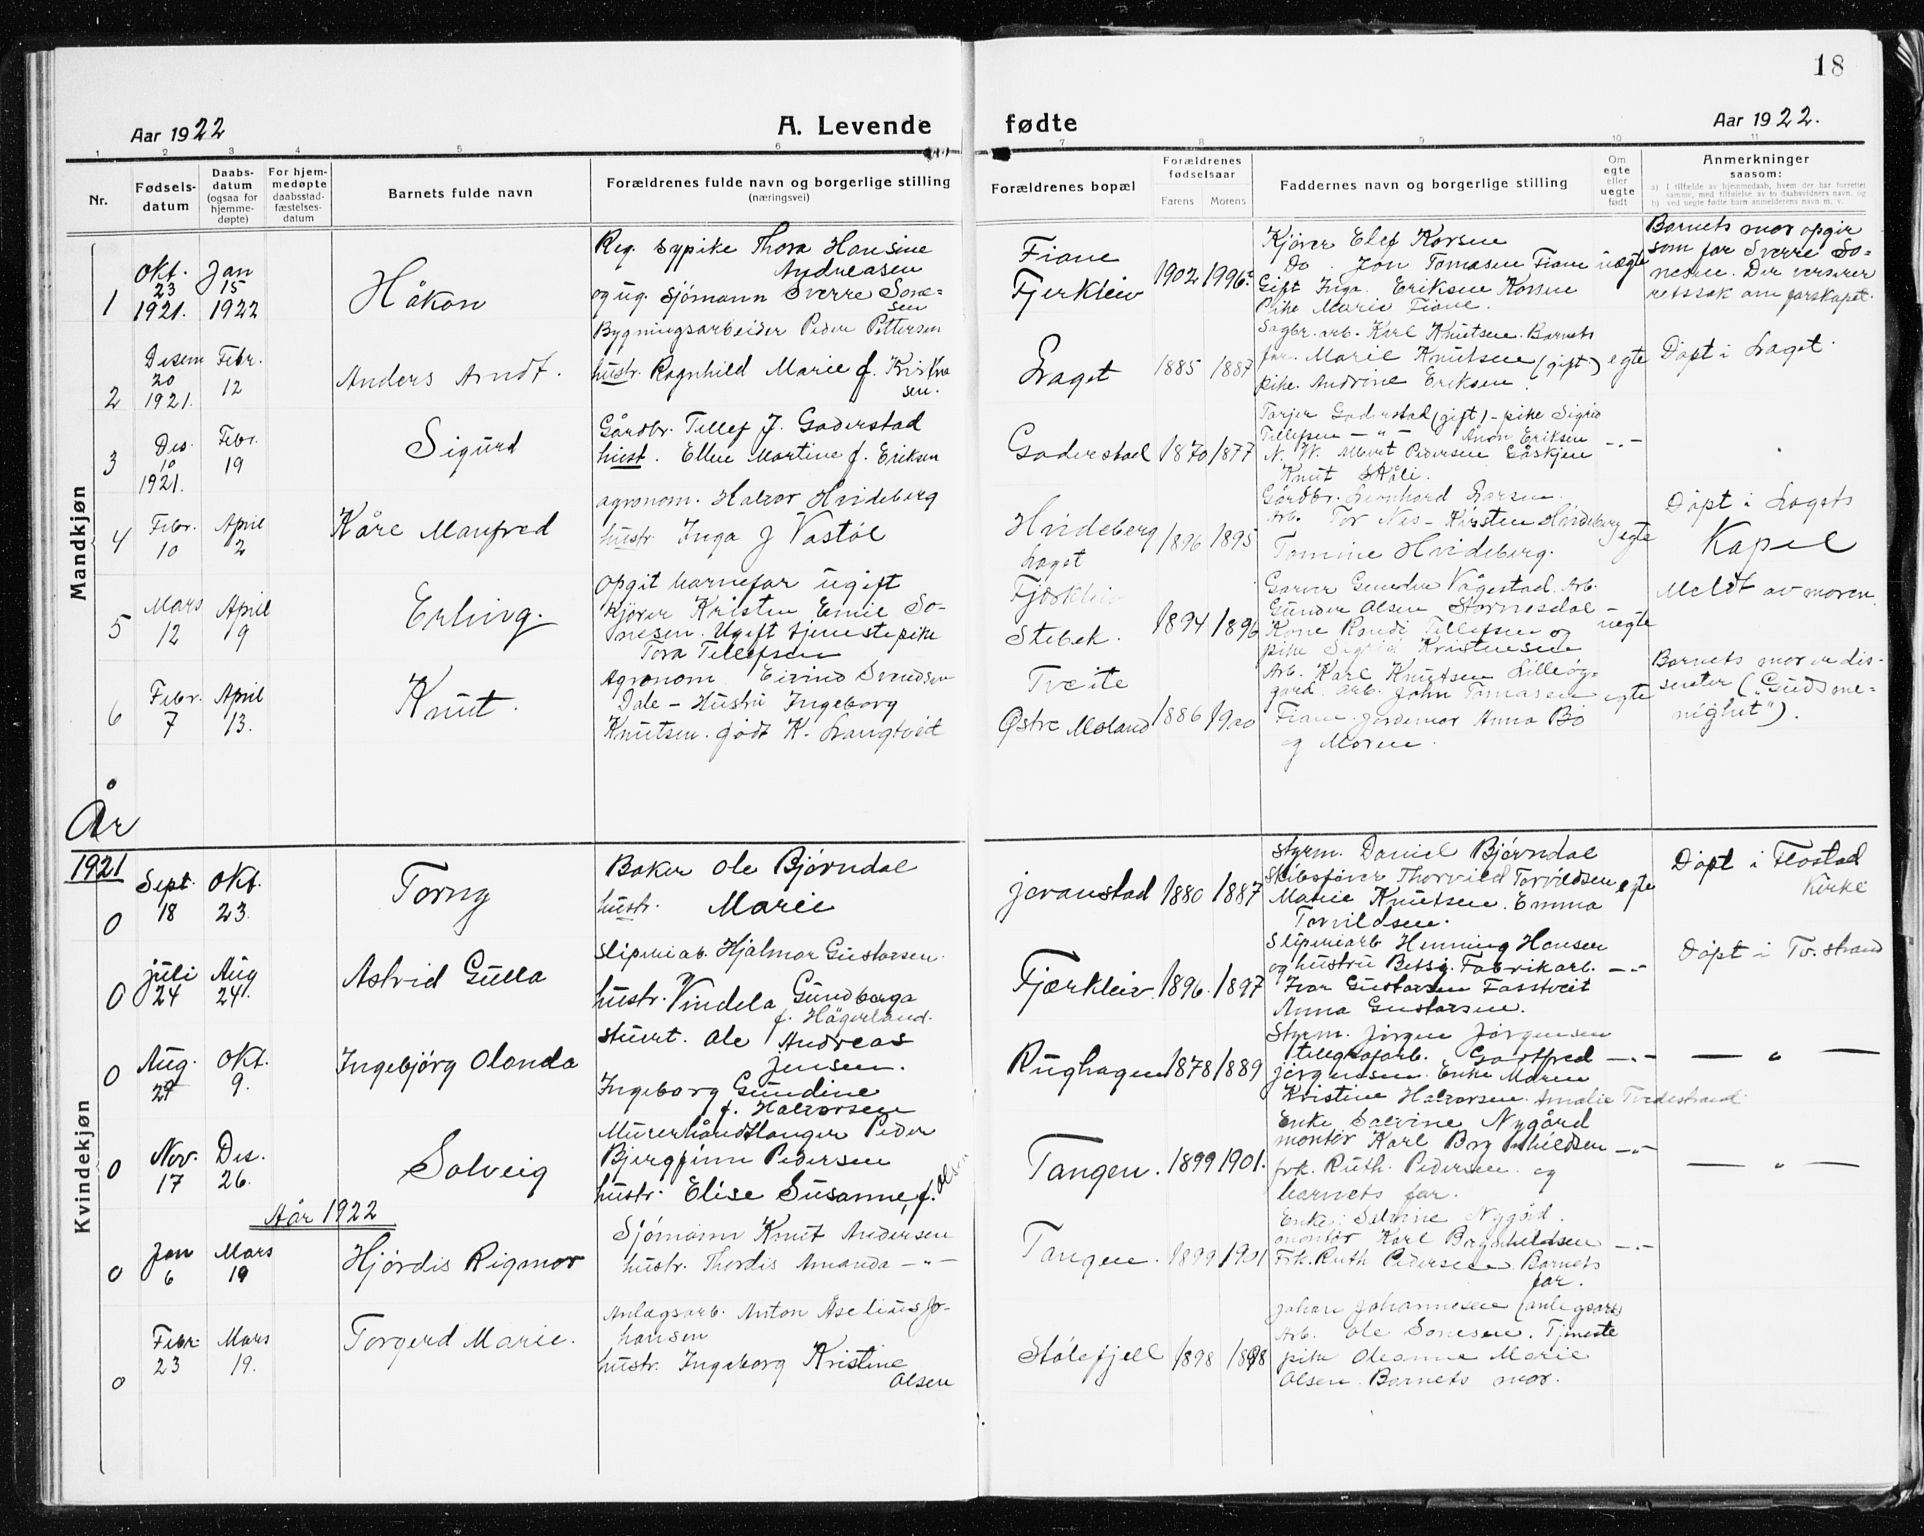 18
Aar 1922
A. Levende fødte
Aar 1922.
1 2 3 4 5 6 7 8 9 10 11
Nr.
Fødsels-
datum
Daabs-
datum
(ogsaa for
hjemme-
døpte)
For hjem-
medøpte
daabsstad-
fæstelses-
datum
Barnets fulde navn
Forældrenes fulde navn og borgerlige stilling
(næringsvei)
Forældrenes bopæl
Forældrenes
fødselsaar
Farens Morens
Faddernes navn og borgerlige stilling
Om
egte
eller
uegte
født
Anmerkninger
saasom:
a) I tilfælde av hjemmedaab, hvem der har forrettet
samme, med tilføielse av to daabsvidners navn, og
b) ved uegte fødte barn anmelderens navn m. v.
Mandkjøn
1
Okt.
23
1921.
Jan
15
1922
Håkon
Reg. sypike Thora Hansine
Andreasen
og ug. Sjömann Sverre Sone-
sen
Fiane
Fjerkleiv
1902 1996?
Kjörer Elef Korsen
Do. Jon Tomasen Fiane
Gift Inga Eriksen Korsen
Pike Marie Fiane.
uægte
Barnets mor opgir
som far Sverre So-
nesen. Der verserer
retssak om farskapet.
2
Desem
20
1921.
Febr.
12
Anders Arndt.
Bygningsarbeider Peder Pettersen
hustr. Ragnhild Marie f. Kristia
sen.
Laget
1885 1887
Sagbr. arb. Karl Knutsen. Barnets
far. Marie Knutsen (gift)
pike. Andrine Eriksen.
egte
Döpt i Laget.
3
Des
10
1921.
Febr.
19
Sigurd
Gårdbr. Tellef J. Goderstad
hust. Ellen Martine f. Eriksen
Goderstad
1870 1877
Tarjer Goderstad (gift) - pike Sigrid
Tellefsen - " - Anon Eriksen
N. W. Albert Pedersen Gåskjen
Knut Skåli.
- " -
4
Febr.
10
April
2
Kåre Manfred
agronom. Halvor Hvideberg
hustr. Inga J Vastöl
Hvideberg
Laget
1896 1895
Gårdbr. Leonhard Larsen.
Arb. Tor Nes - Kirsten Hvideberg
Tomine Hvideberg.
egte
Döpt i Lagets
Kapel
5
Mars
12
April
9
Erling.
Opgit barnefar ugift
kjörer Kristen Emil So-
nesen. Ugift tjenestepike
Tora Tellefsen
Fjærkleiv
Stebek.
1894 1896
Garver Gunder Vågestad. Arb.
Gunder Olsen Stornesdal
Kone Randi Tellefsen og
pike Sigrid Kristensen
uegte
Meldt av moren.
6
Febr.
7
April
13.
Knut.
Agronom Eivind Svendsen
Dale - Hustru Ingeborg
Knutsen. födt K. Langtvedt
Tveite
Østre Moland
1886 1900
Arb. Karl Knutsen Lilleög-
gard. arb. John Tomasen
Fiane. Jordemor Anna Bö
og Moren.
egte
Barnets mor er dis-
senter ("Guds me-
nighet").
År
1921
Kvindekjøn
0
Sept.
18
Okt.
23.
Torny
Baker Ole Bjørndal
hustr. Marie
Jevanstad
1880 1887
Styrm. Daniel Bjørndal
Skibsförer Thorvild Torvildsen
Marie Knutsen. Emma
Torvildsen.
egte
Döpt i Flostad
Kirke
0
Juli
24
Aug
24.
Astrid Gulla
Sliperiab. Hjalmar Gustavsen.
hustr. Vindela Gundborga
f. Hägerland.
Fjærkleiv
1896. 1897
Sliperiarb Henning Hansen
og hustru Betsy. Fabrikarb.
Ivar Gustavsen Fasstveit
Anna Gustavsen.
- " -
Döpt i Tv.strand
0
Aug.
29
Okt.
9.
Ingebjörg Olonda
Stuert. Ole Andreas
Jensen.
Ingeborg Gundine
f. Halvorsen
Rughagen
1878 1889
Styrm. Jörgen Jörgensen
telegrafarb. Godtfred
Jörgensen. Enke Maren
Kristine Halvorsen. Amalie Tvedestrand.
- " -
- " -
0
Nov.
17
Des.
26.
Solveig
Murerhåndtlanger Peder
Bjergfinn Pedersen
hustr. Elise Susanne, f. Olsen
Tangen.
1899 1901.
Enke Salvine Nygård
montör Karl Brynhildsen
frk. Ruth. Pedersen. og
barnets far.
- " -
- " -
Aår 1922
0
Jan
6
Mars
19
Hjördis Rigmor
Sjömann Knut Andersen
hustr. Thordis Amanda - " -
Tangen.
1899 1901
Enke: Salvine Nygård.
montör Karl Brynhildsen
Frk. Ruth Pedersen. Barnets
far.
- " -
0
Febr.
23
Mars
19.
Torgerd Marie.
Anlægsarb. Anton Aselius Jo-
hansen
hustr. Ingeborg Kristine
Olsen
Stölefjell
1898 1898
Johan Johannesen (anlegsarb)
Arb. Ole Sonesen. Tjeneste
pike Oleanne Marie
Olsen. Barnets mor.